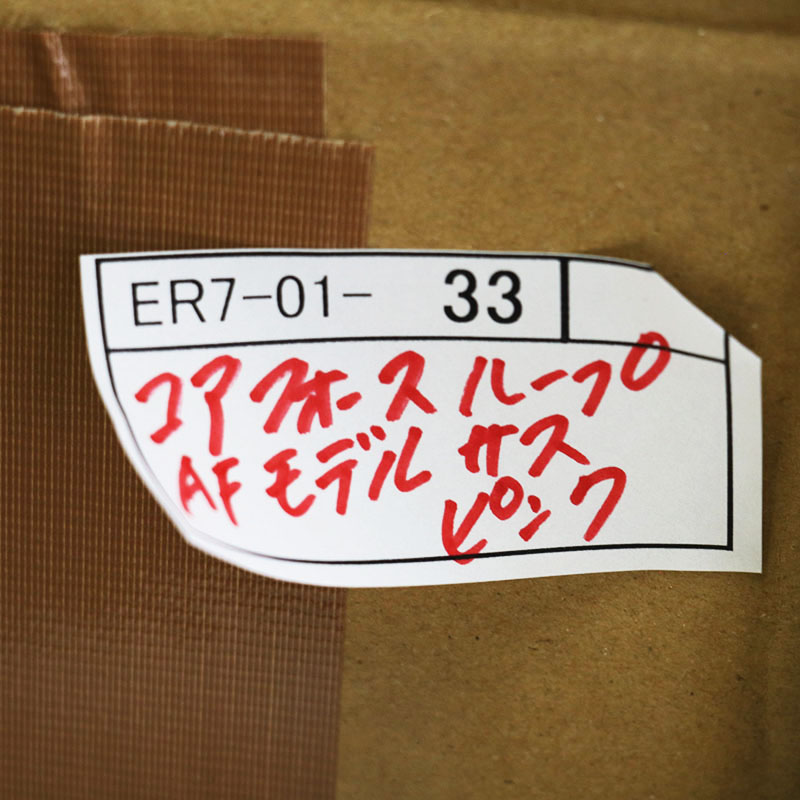 ER7-01- 33
コアフォース ループ
AF モデル サス
ピンク